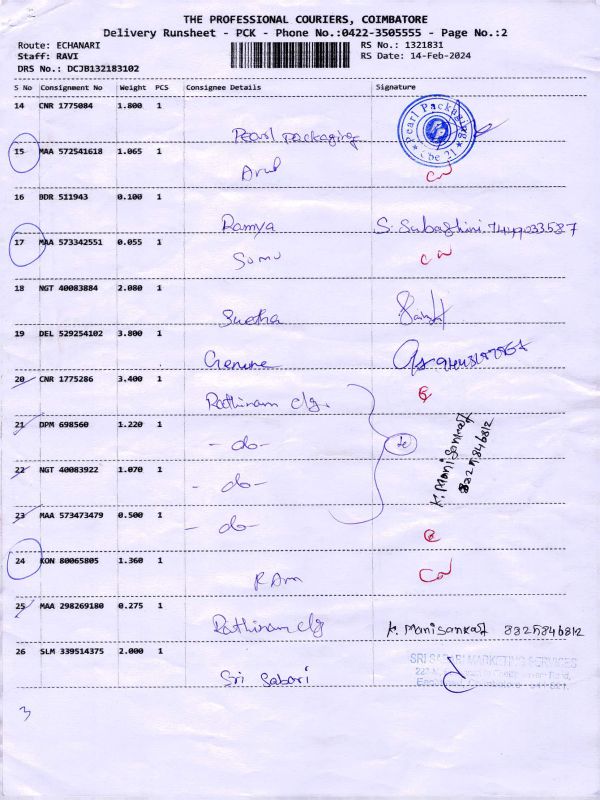 THE PROFESSIONAL COURIERS, COIMBATORE
Delivery Runsheet - PCK - Phone No.:0422-3505555 - Page No.:2
Route: ECHANARI RS No.: 1321831
Staff: RAVI RS Date: 14-Feb-2024
DRS No.: DCJB132183102
S No Consignment No Weight PCS Consignee Details Signature
14 CNR 1775084 1.800 1
Pearl packaging Pearl Packaging Cbe 21
15 MAA 572541618 1.065 1
Arul
16 BDR 511943 0.100 1
Ramya S. Subashini. 7449033587
17 MAA 573342551 0.055 1
Somu
18 NGT 40083884 2.080 1
Suetha
19 DEL 529254102 3.800 1
Genune
20 CNR 1775286 3.400 1
Rathinam clg.
21 DPM 698560 1.220 1
- do-
K. Manisankar
8825846812
22 NGT 40083922 1.070 1
- do-
23 MAA 573473479 0.500 1
- do-
24 KON 80065805 1.360 1
RAm
25 MAA 298269180 0.275 1
Rathinam clg K. Manisankar 8825846812
26 SLM 339514375 2.000 1
Sri Sabari SRI SABARI MARKETING SERVICES
3